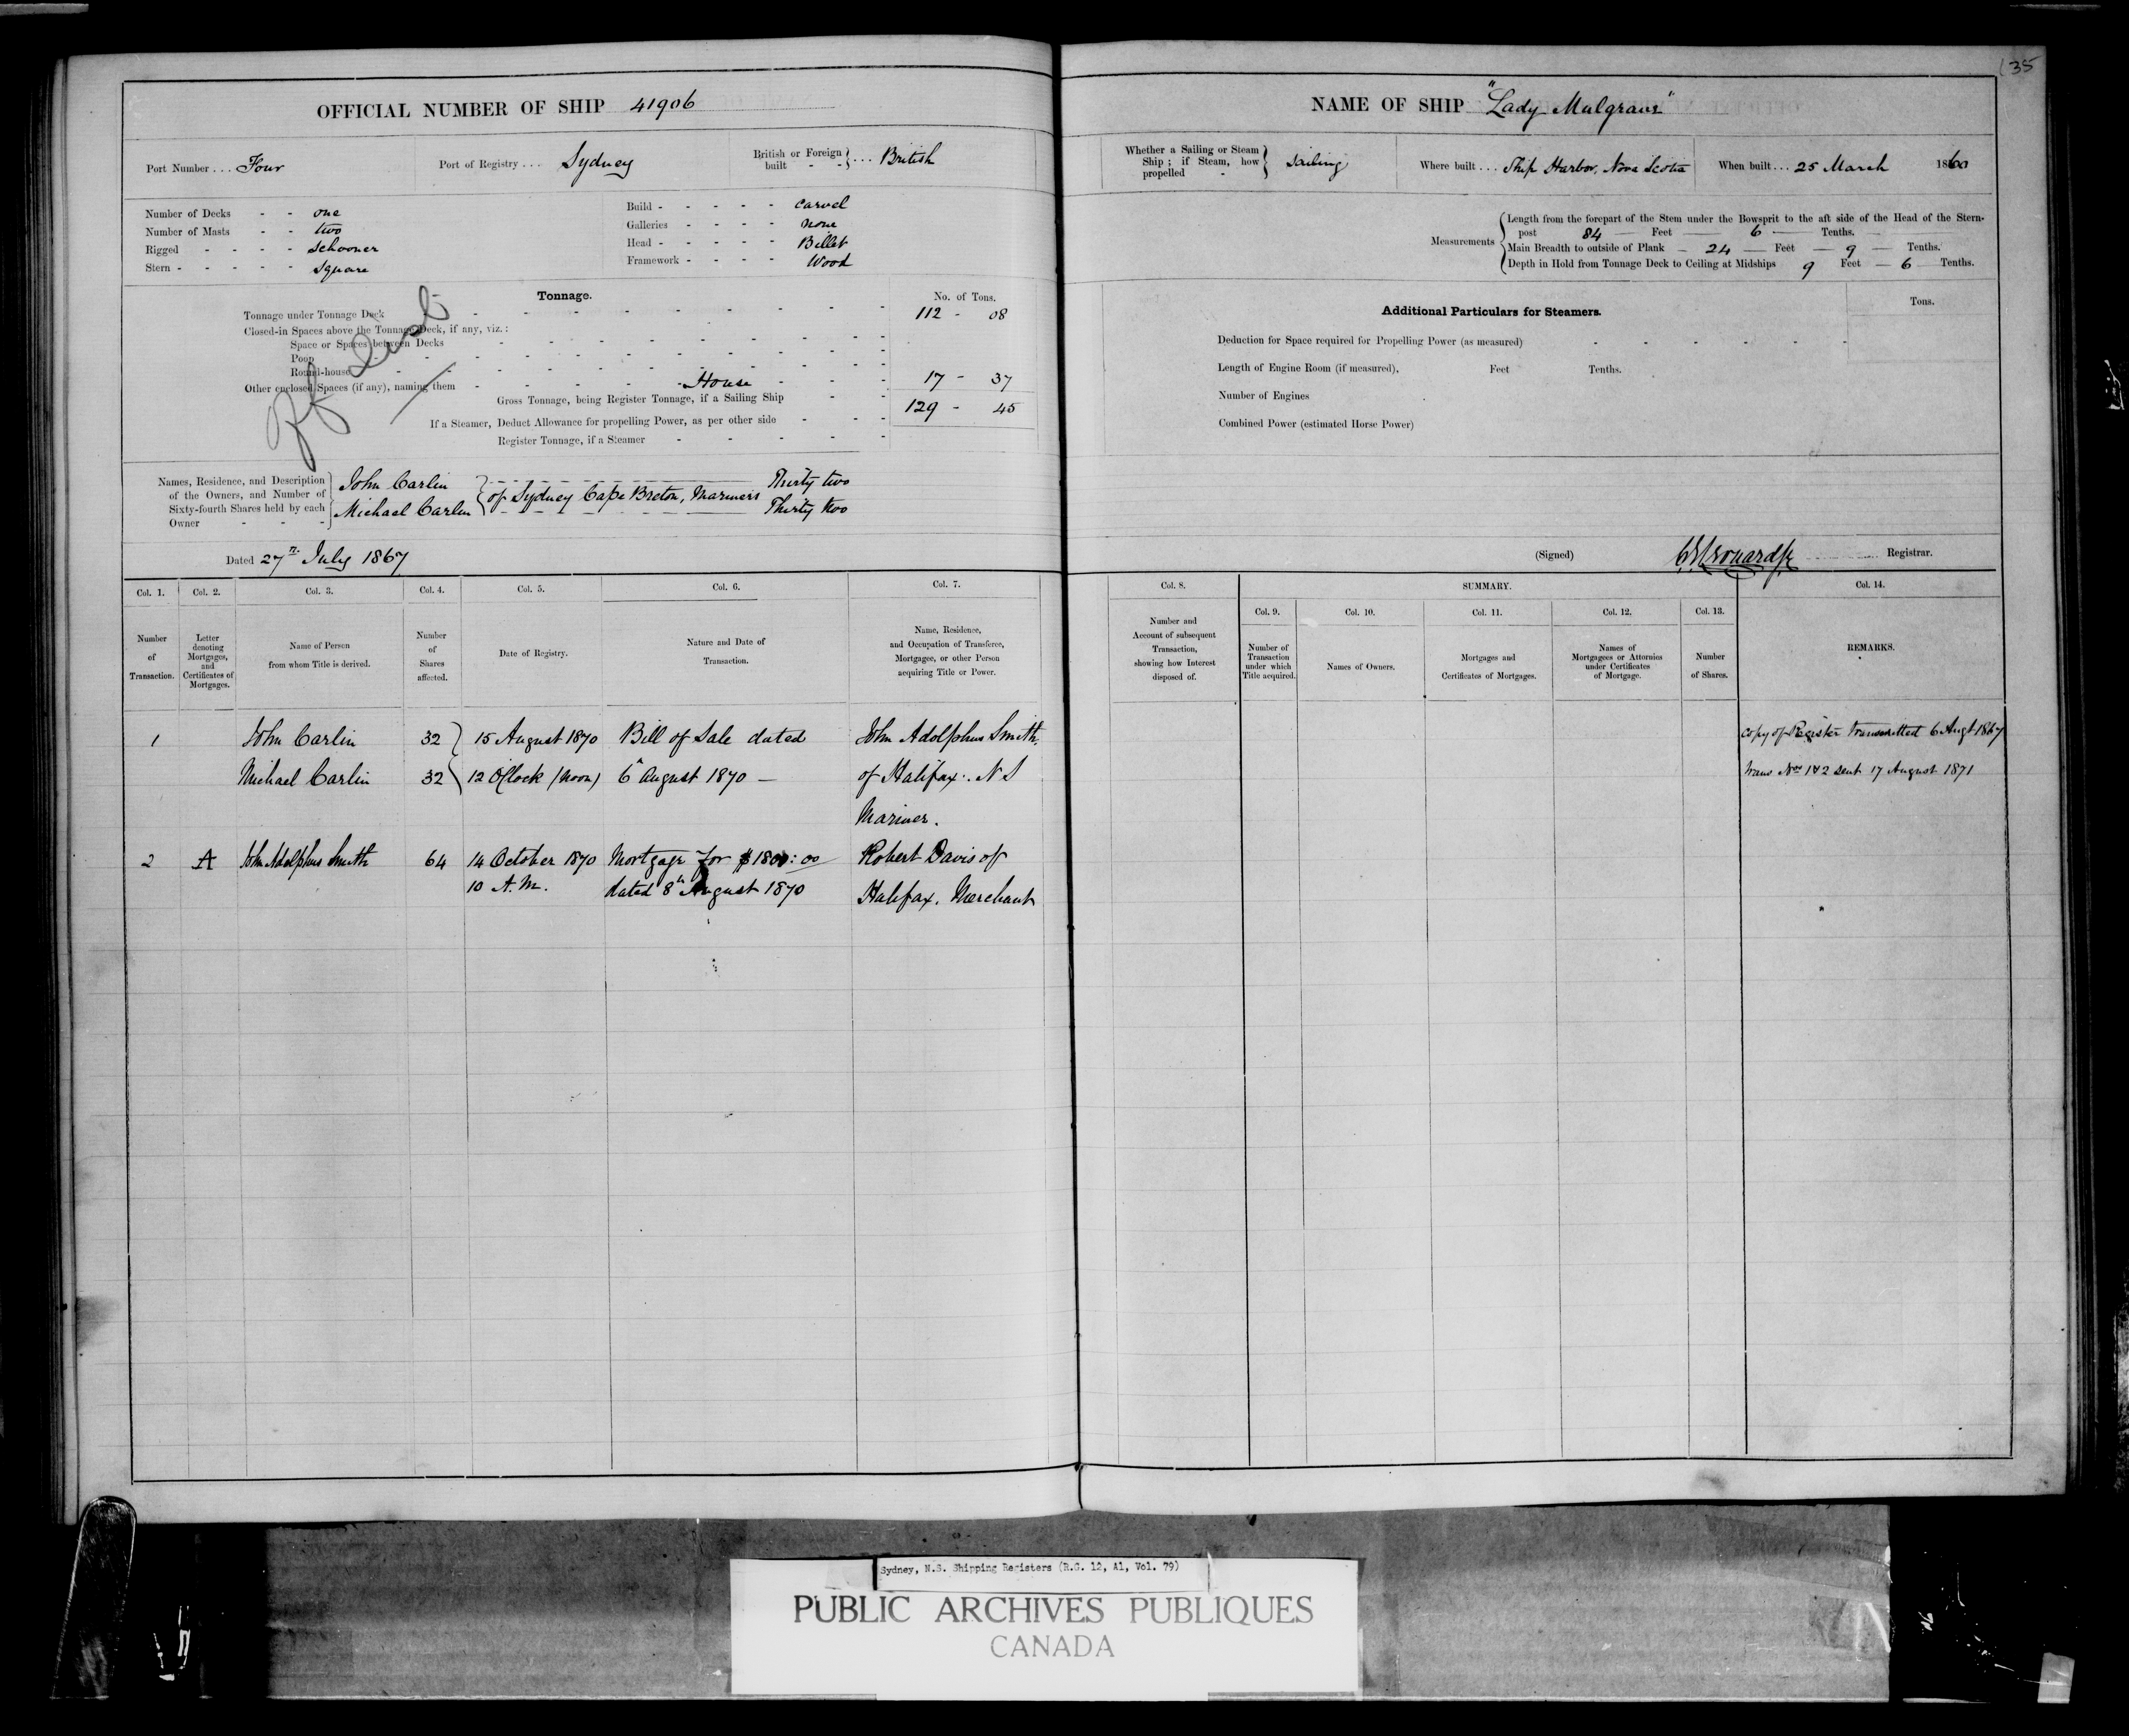 35
OFFICIAL NUMBER OF SHIP 41906
Port Number ... Four
Port of Registry ... Sydney
British or Foreign built - - } ... British
Number of Decks - - one
Number of Masts - - two
Rigged - - - - schooner
Stern - - - - - square
Build - - - - - Carvel
Galleries - - - - none
Head - - - - - Billet
Framework - - - - Wood
Tonnage.
No. of Tons.
Tonnage under Tonnage Deck 112 - 08
Closed-in Spaces above the Tonnage Deck, if any, viz.:
Space or Spaces between Decks
Poop
Round-house
Other enclosed Spaces (if any), naming them - House 17 - 37
Gross Tonnage, being Register Tonnage, if a Sailing Ship 129 - 45
If a Steamer, Deduct Allowance for propelling Power, as per other side
Register Tonnage, if a Steamer
Names, Residence, and Description of the Owners, and Number of Sixty-fourth Shares held by each Owner
John Carlin
Michael Carlin
of Sydney Cape Breton, Mariners
Thirty two
Thirty two
Dated 27th July 1867
Col. 1. Col. 2. Col. 3. Col. 4. Col. 5. Col. 6. Col. 7.
Number of Transaction.
Letter denoting Mortgages, and Certificates of Mortgages.
Name of Person from whom Title is derived.
Number of Shares affected.
Date of Registry.
Nature and Date of Transaction.
Name, Residence, and Occupation of Transferee, Mortgagee, or other Person acquiring Title or Power.
1 John Carlin 32 } 15 August 1870 Bill of Sale dated John Adolphus Smith
Michael Carlin 32 } 12 O'Clock (Noon) 6th August 1870 — of Halifax. N S
Mariner.
2 A John Adolphus Smith 64 14 October 1870 Mortgage for $1800:00 Robert Davis of
10 A.M. dated 8th August 1870 Halifax. Merchant
NAME OF SHIP "Lady Mulgrave"
Whether a Sailing or Steam Ship; if Steam, how propelled - } Sailing
Where built ... Ship Harbor, Nova Scotia
When built ... 25 March 1860
Measurements
Length from the forepart of the Stem under the Bowsprit to the aft side of the Head of the Stern-
post 84 — Feet — 6 — Tenths.
Main Breadth to outside of Plank — 24 — Feet — 9 — Tenths.
Depth in Hold from Tonnage Deck to Ceiling at Midships 9 Feet — 6 Tenths.
Additional Particulars for Steamers.
Tons.
Deduction for Space required for Propelling Power (as measured)
Length of Engine Room (if measured), Feet Tenths.
Number of Engines
Combined Power (estimated Horse Power)
(Signed) Registrar.
Col. 8. SUMMARY. Col. 14.
Col. 9. Col. 10. Col. 11. Col. 12. Col. 13.
Number and Account of subsequent Transaction, showing how Interest disposed of.
Number of Transaction under which Title acquired.
Names of Owners.
Mortgages and Certificates of Mortgages.
Names of Mortgagees or Attornies under Certificates of Mortgage.
Number of Shares.
REMARKS.
Copy of Register transmitted 6 Augt 1867
Trans Nos 1&2 sent 17 August 1871
Sydney, N.S. Shipping Registers (R.G. 12, A1, Vol. 79)
PUBLIC ARCHIVES PUBLIQUES
CANADA